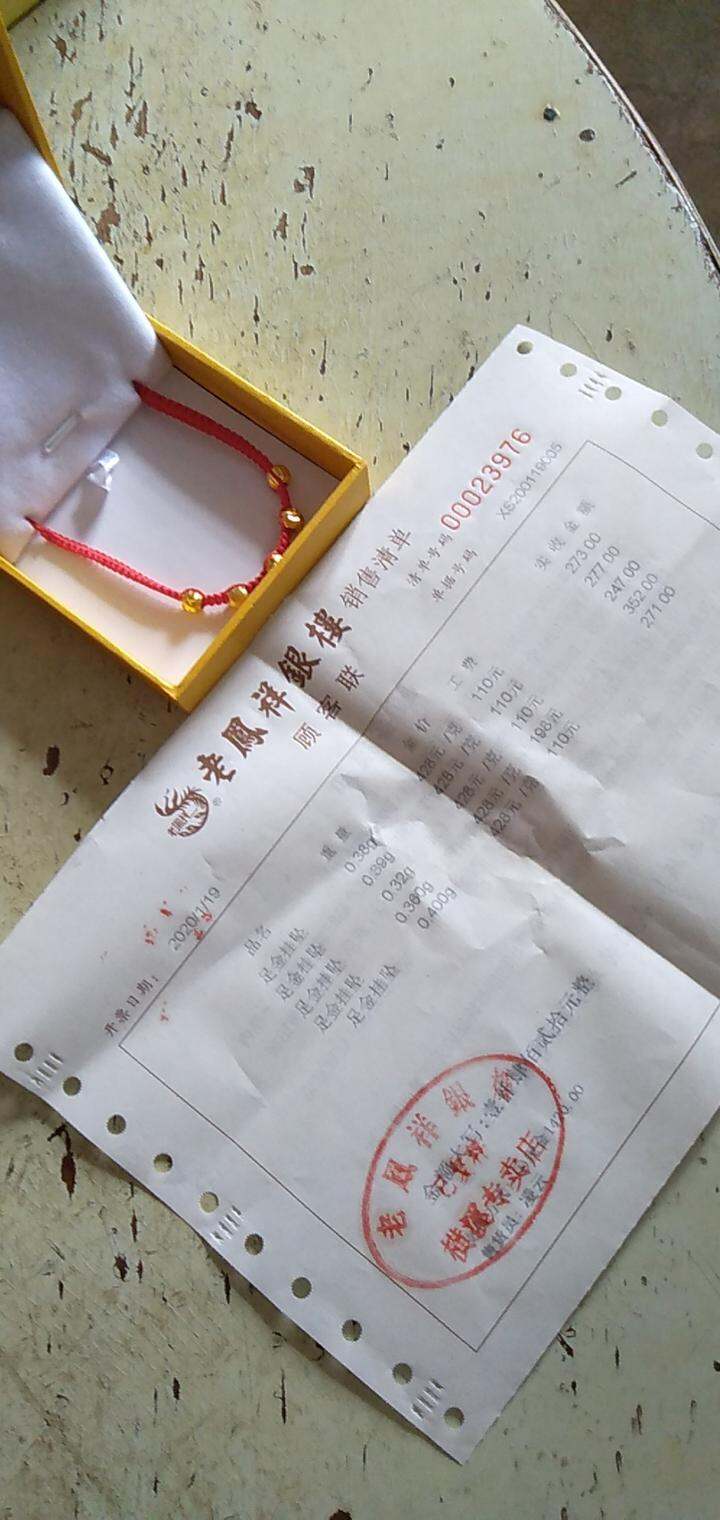 老鳳祥銀樓 销售清单
顾客联
清单号码 00023976
单据号码 XS200119005
开票日期： 2020/1/19
品名 重量 金价 工费 卖收金额
足金挂坠 0.38g 428元/克 110元 273.00
足金挂坠 0.39g 428元/克 110元 277.00
足金挂坠 0.32g 428元/克 110元 247.00
足金挂坠 0.360g 428元/克 198元 352.00
足金挂坠 0.400g 428元/克 110元 271.00
金额大写：壹仟肆佰贰拾元整
1420.00
售货员：凌云
老鳳祥銀樓
专卖店